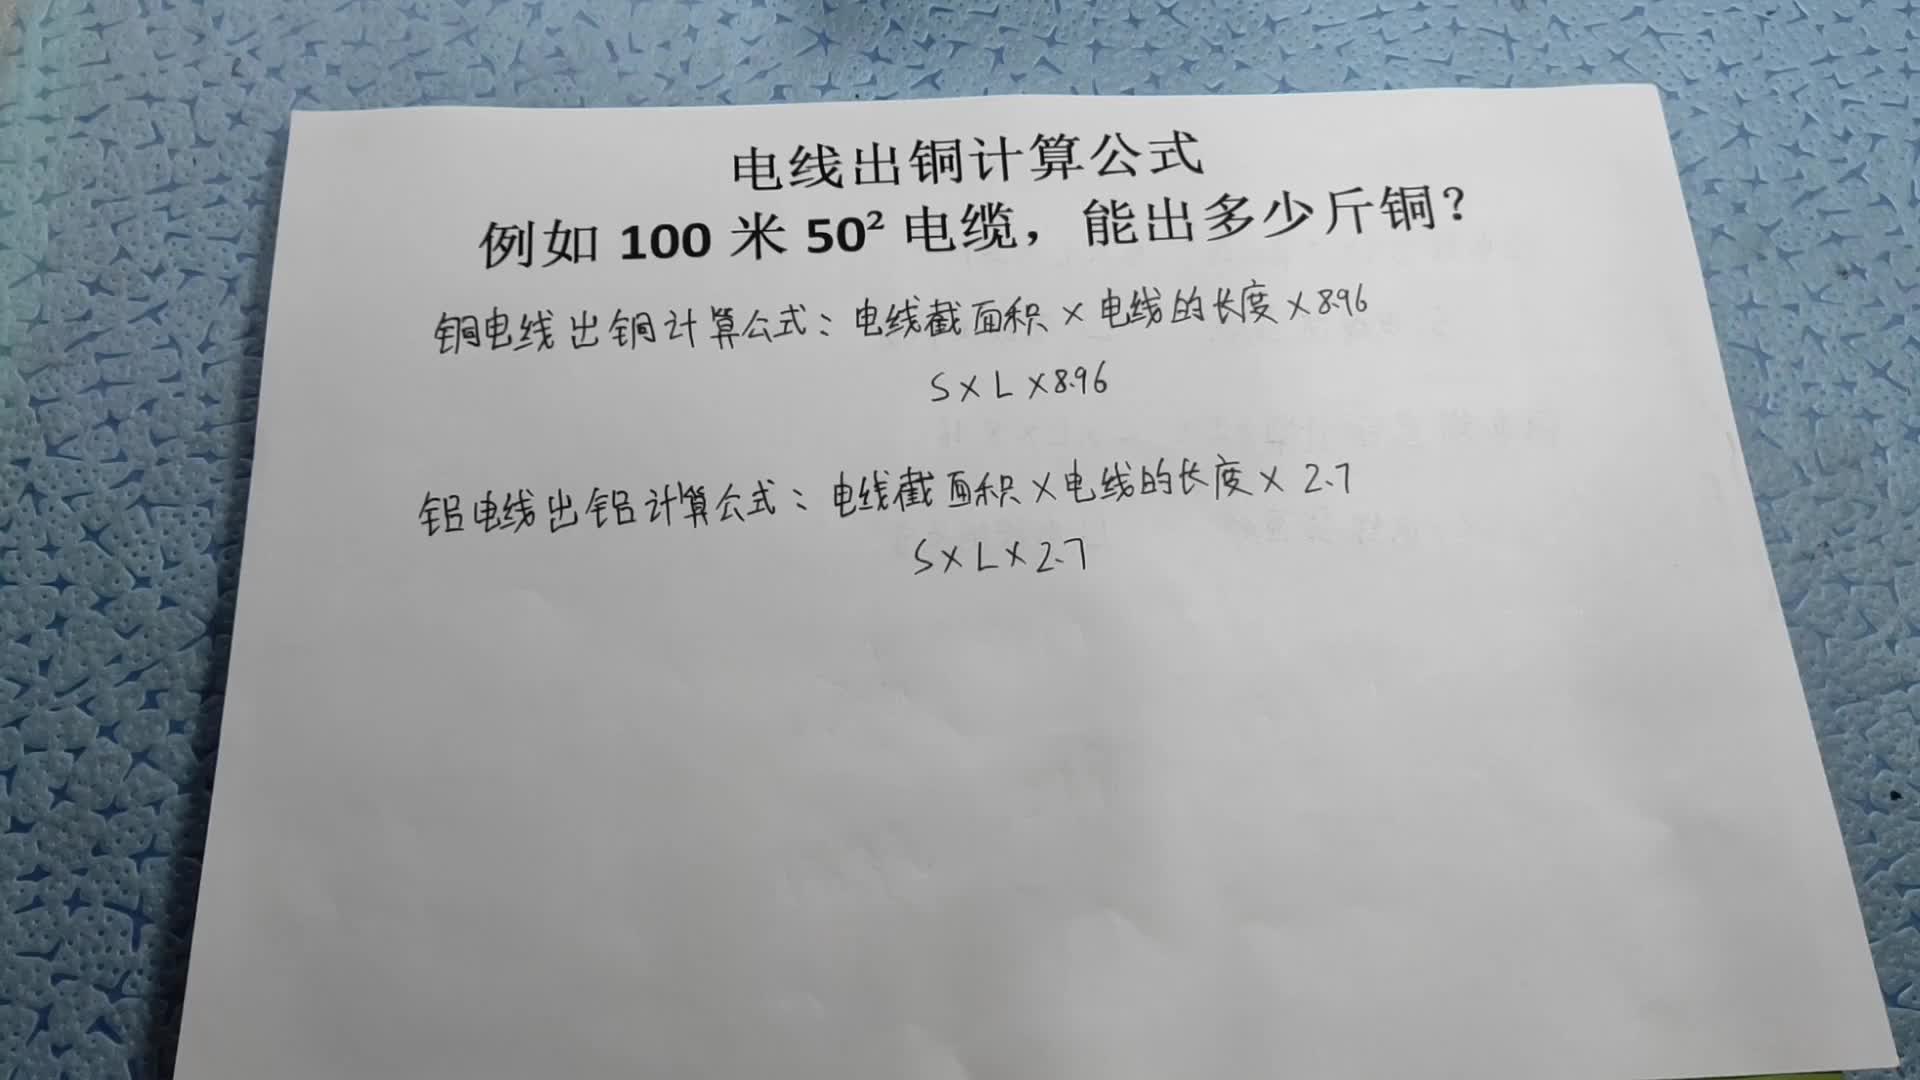 电线出铜计算公式
例如 100 米 50² 电缆，能出多少斤铜？
铜电线出铜计算公式：电线截面积×电线的长度×8.96
S×L×8.96
铝电线出铝计算公式：电线截面积×电线的长度×2.7
S×L×2.7